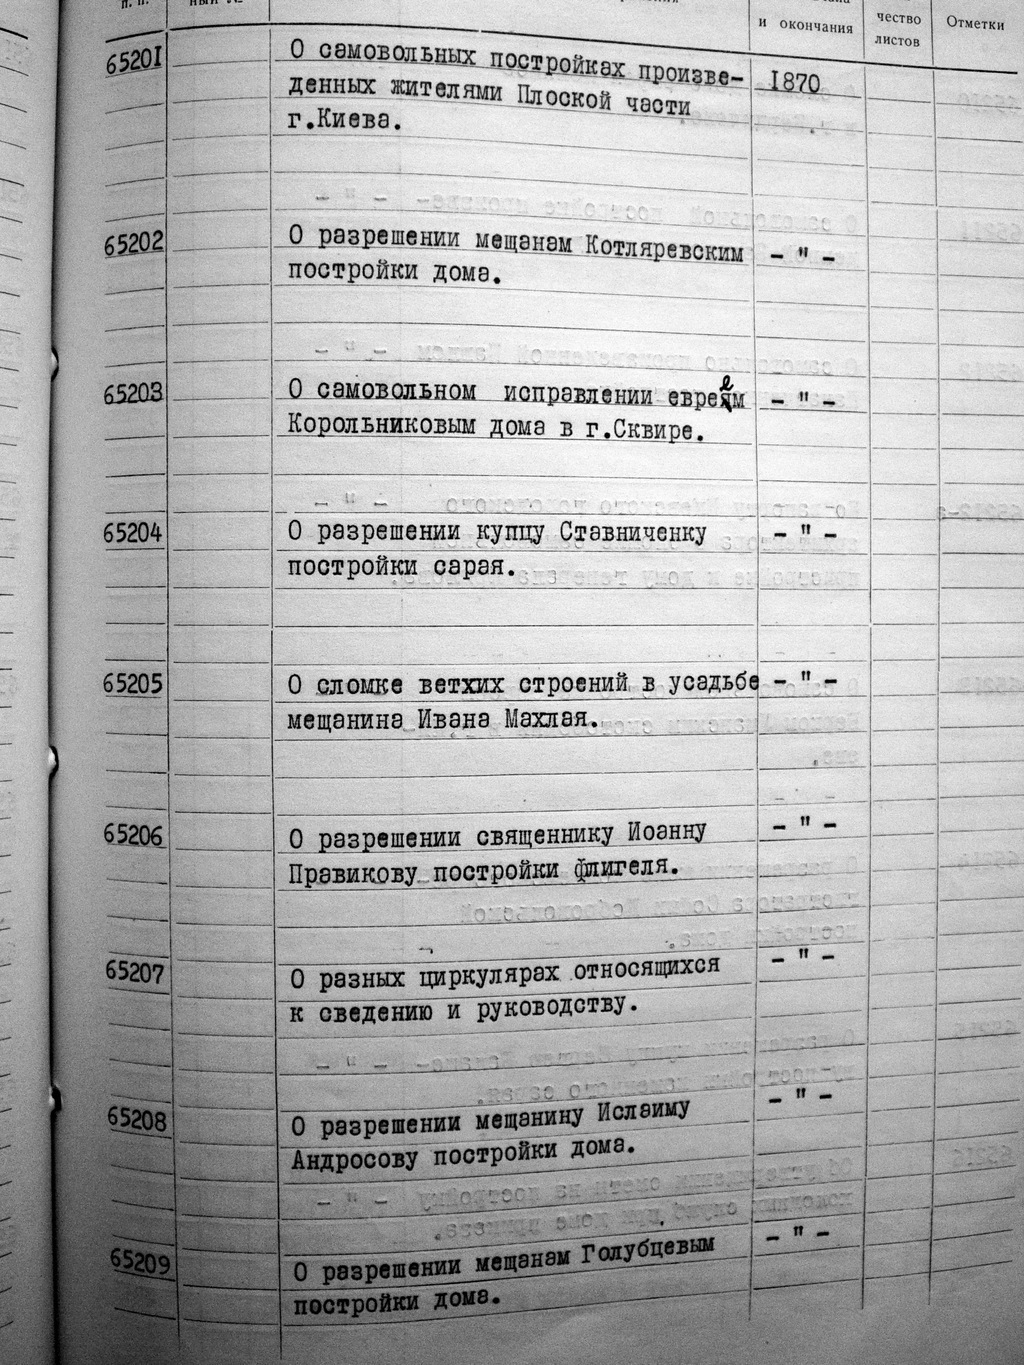 и окончания
чество
листов
Отметки
65201 О самовольных постройках произве- 1870
денных жителями Плоской части
г.Киева.
65202 О разрешении мещанам Котляревским - " -
постройки дома.
65203 О самовольном исправлении евреем - " -
Корольниковым дома в г.Сквире.
65204 О разрешении купцу Ставниченку - " -
постройки сарая.
65205 О сломке ветхих строений в усадьбе - " -
мещанина Ивана Махлая.
65206 О разрешении священнику Иоанну - " -
Правикову постройки флигеля.
65207 О разных циркулярах относящихся - " -
к сведению и руководству.
65208 О разрешении мещанину Ислаиму - " -
Андросову постройки дома.
65209 О разрешении мещанам Голубцевым - " -
постройки дома.